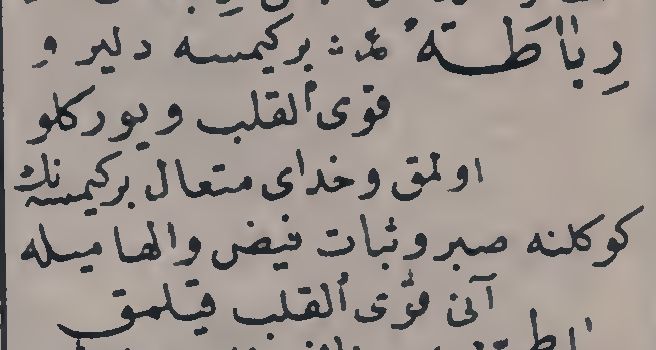 رِباطَة مذ بركيمسه دلير و
قوى القلب و يوركلو
اولمق و خداى متعال بركيمسنه نك
كوكلنه صبر و ثبات فيض و الهاميله
آنى قوّى القلب قيلمق